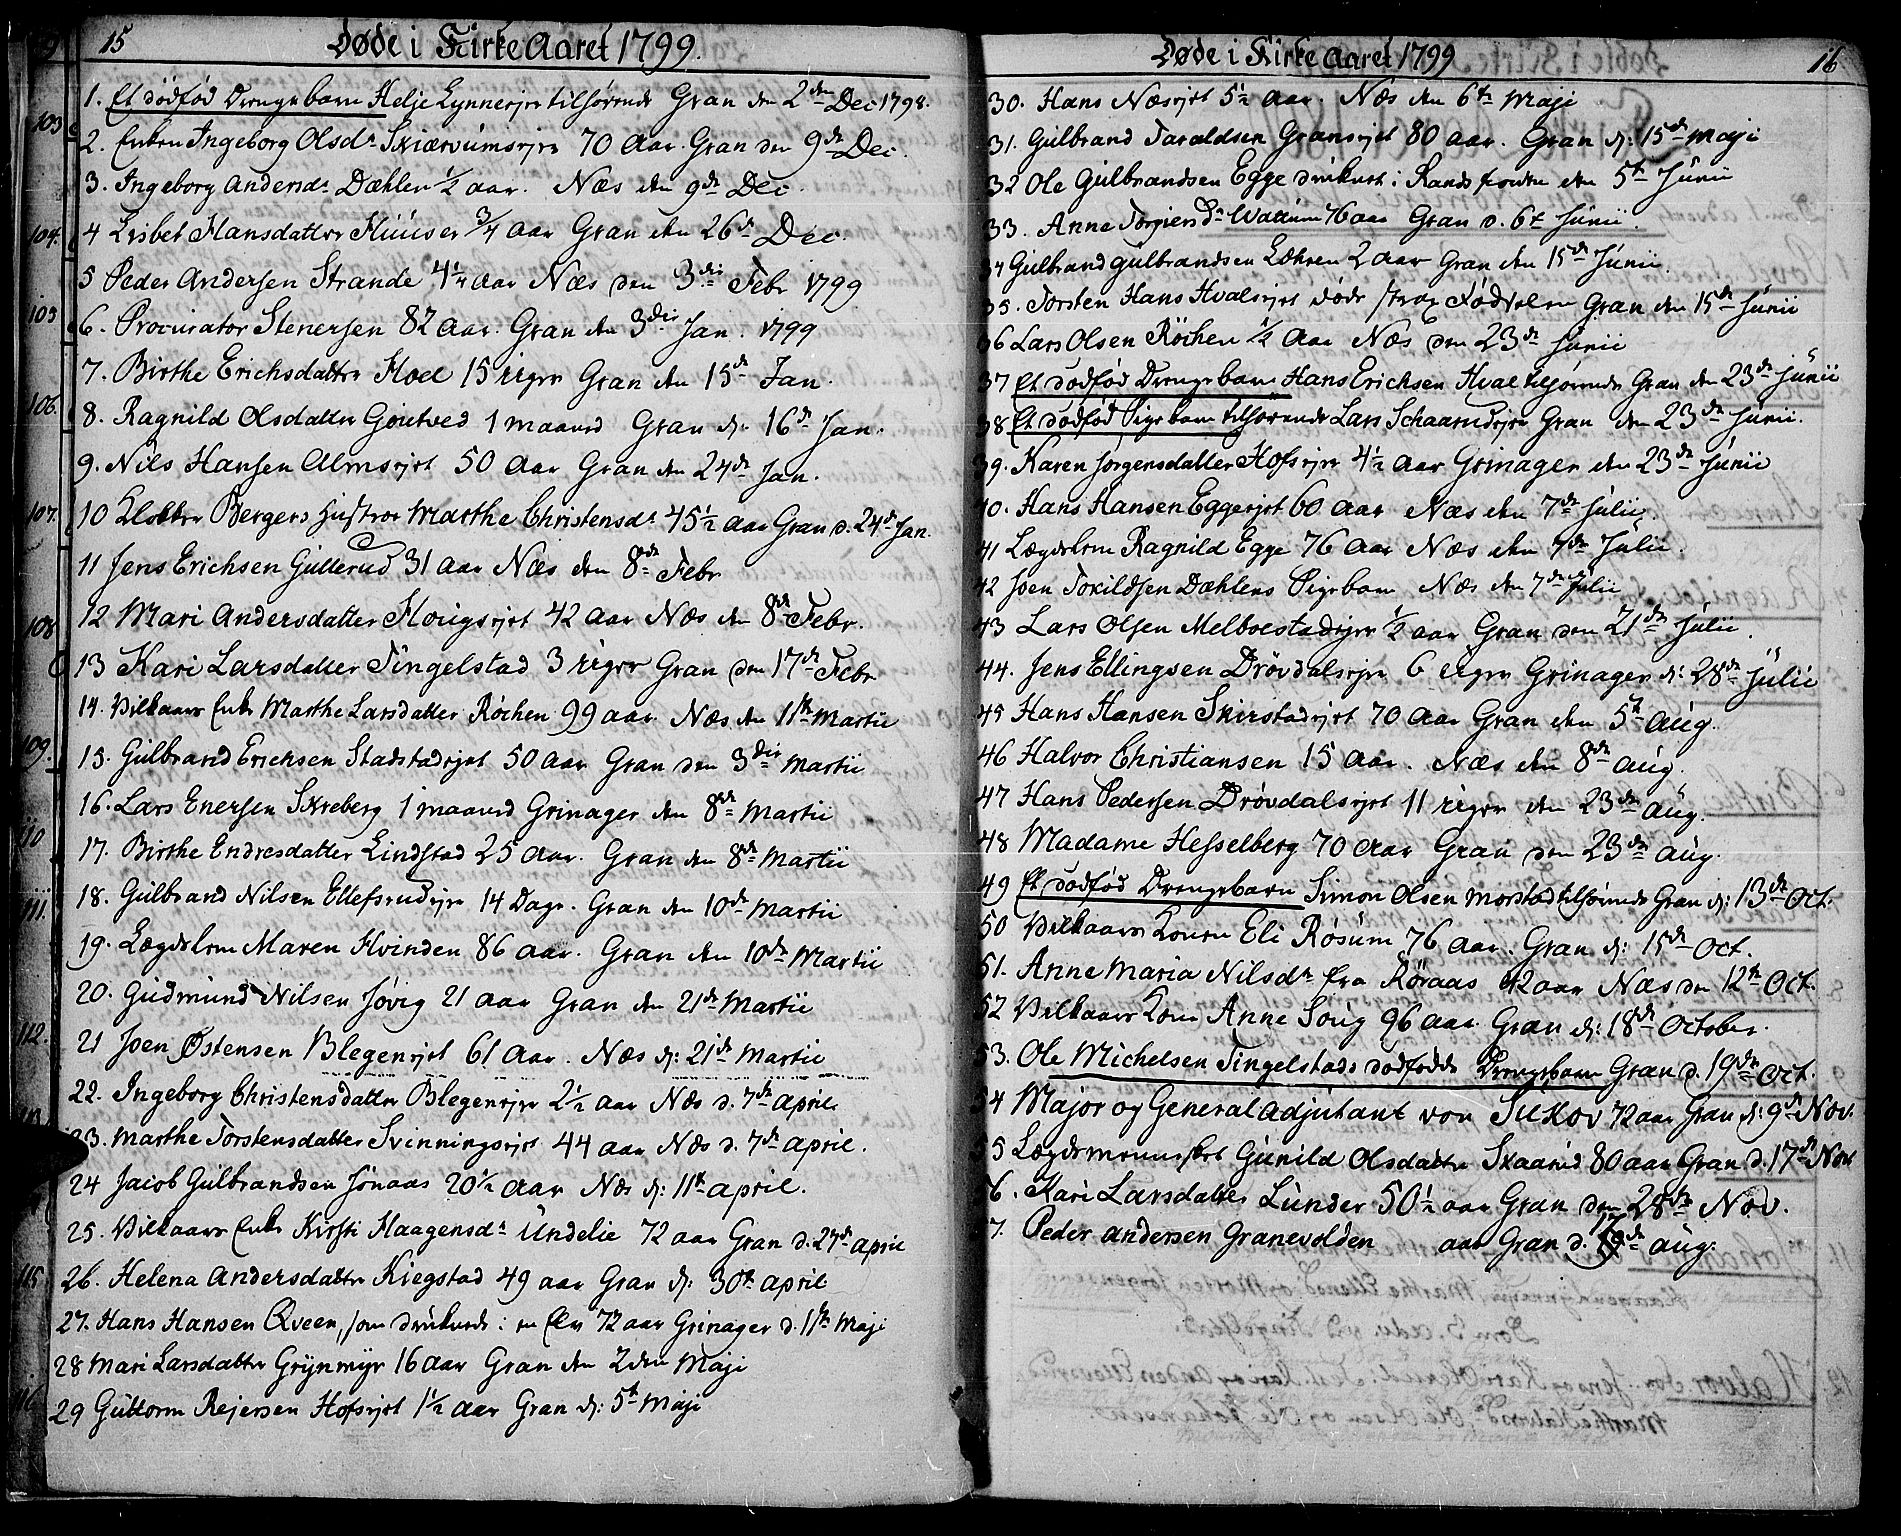 15 Døde i Kirke Aaret 1799.
1. Et dødfød Drengebarn Helje Lynneeje tilhørende Gran den 2den Dec 1798.
2. Enken Ingeborg Olsdr Skiærvumseje 70 Aar. Gran den 9de Dec.
3. Ingeborg Andersdr Dæhlen ½ aar. Næs den 9de Dec.
4 Lisbet Hansdatter Huuser ¾ aar Gran den 26de Dec.
5 Peder Andersen Strande 4¼ aar Næs den 3die Febr 1799
6. Procurator Stenersen 82 aar. Gran den 3die Jan. 1799
7. Birthe Erichsdatter Hoel 15 uger Gran den 15de Jan.
8. Ragnild Olsdatter Goutved 1 maaned Gran d: 16de Jan.
9. Nils Hansen Almsejet 50 Aar Gran den 24de Jan.
10 Klokker Bergers Hustroe Marthe Christensdr 45½ aar Gran d. 24de Jan.
11 Jens Erichsen Gullerud 31 aar Næs den 8de Febr
12 Mari Andersdatter Hougsejet 42 aar Næs den 8de Febr.
13 Kari Larsdatter Tingelstad 3 uger Gran den 17de Febr
14. Vilkaars Enke Marthe Larsdatter Røchen 99 aar Næs den 11te Martii
15. Gulbrand Erichsen Stadstadejet 50 aar Gran den 3die Martii
16. Lars Enersen Skreberg 1 maaned Grinager den 8de Martii
17. Birthe Endresdatter Lindstad 25 aar. Gran den 8de Martii
18. Gulbrand Nilsen Ellefsrudeje 14 Dage. Gran den 10de Martii
19. Lægdslem Maren Hvinden 86 aar. Gran den 10de Martii
20. Gudmund Nilsen Jøvig 21 aar Gran den 21de Martii
21 Joen Østensen Blegenejet 61 aar. Næs d: 21de Martii
22. Ingeborg Christensdatter Blegeneje 2½ aar Næs d. 7de april
23. Marthe Torstensdatter Svinningsejet 44 aar Næs d. 7de april.
24 Jacob Gulbrandsen Jonaas 20½ aar Næs d: 11te april.
25. Vilkaars Enke Kirsti Haagensdr Undelie 72 aar Gran d. 27de april
26. Helena Andersdatter Kiegstad 49 aar Gran d: 30te april
27. Hans Hansen Qveen, som druknede i en Elv 72 aar Grinager d. 11te Maji
28 Mari Larsdatter Grynmyr 16 aar Gran den 2den Maji
29 Guttorm Rejersen Hofsejet 1½ aar Gran d: 5te Maji
Døde i Kirke Aaret 1799 16
30. Hans Næsejet 5½ aar. Næs den 6te Maji
31. Gulbrand Taraldsen Gransejet 80 aar. Gran d: 15de Maji
32 Ole Gulbrandsen Egge druknet i Randsfiorden den 5te Junii
33. Anne Torgiersdr Wattum 76 aar Gran d. 6te Junii.
34 Gulbrand Gulbrandsen Løkren 2 aar Gran den 15de Junii.
35. Torsten Hans Hvalsejet døde strax Fødselen Gran den 15de Junii
36 Lars Olsen Røchen ½ Aar Næs den 23de Junii
37 Et dødfød Drengebarn Hans Erichsen Hval tilhørende Gran den 23de Junii
38 Et dødfød Pigebarn tilhørende Lars Schaarudeje Gran den 23de Junii.
39. Karen Jørgensdatter Hofseje 4½ aar Grinager den 23de Junii
40. Hans Hansen Eggeejet 60 aar Næs den 7de Julii
41 Lægdslem Ragnild Egge 76 aar Næs den 7de Julii.
42 Joen Torildsen Dæhlens Pigebarn Næs den 7de Julii
43 Lars Olsen Melboestadeje ½ aar Gran den 21de Julii.
44. Jens Ellingsen Drøvdalseje 6 uger Grinager d: 28de Julii
45 Hans Hansen Skiestadejet 70 aar Gran den 5te Aug.
46 Halvor Christiansen 15 aar. Næs den 8de Aug.
47 Hans Pedersen Drøvdalsejet 11 uger den 23de Aug.
48 Madame Hesselberg 70 aar Gran den 23de Aug.
49 Et dødfød Drengebarn Simon Olsen Morstad tilhørende Gran d: 13de Oct.
50 Vilkaars Konen Eli Røsum 76 aar. Gran d: 15de Oct.
51. Anne Maria Nilsdr fra Røraas 42 aar Næs den 12te Oct.
52 Vilkaars Kone Anne Soug 96 aar. Gran d: 18de October.
53. Ole Michelsen Tingelstads dødfødde Drengebarn Gran d. 19de Oct.
54 Major og General adjutant von Sukov 72 aar Gran d: 9de Nov.
55 Lægdsmennesket Gunild Olsdatter Skaarud 80 aar Gran d. 17de Nov
6. Kari Larsdatter Lunder 50½ aar Gran den 28de Nov.
7. Peder Andersen Granevolden aar Gran d. 17de Aug:
103
104.
105
106.
107.
108
109.
110
111.
112.
115